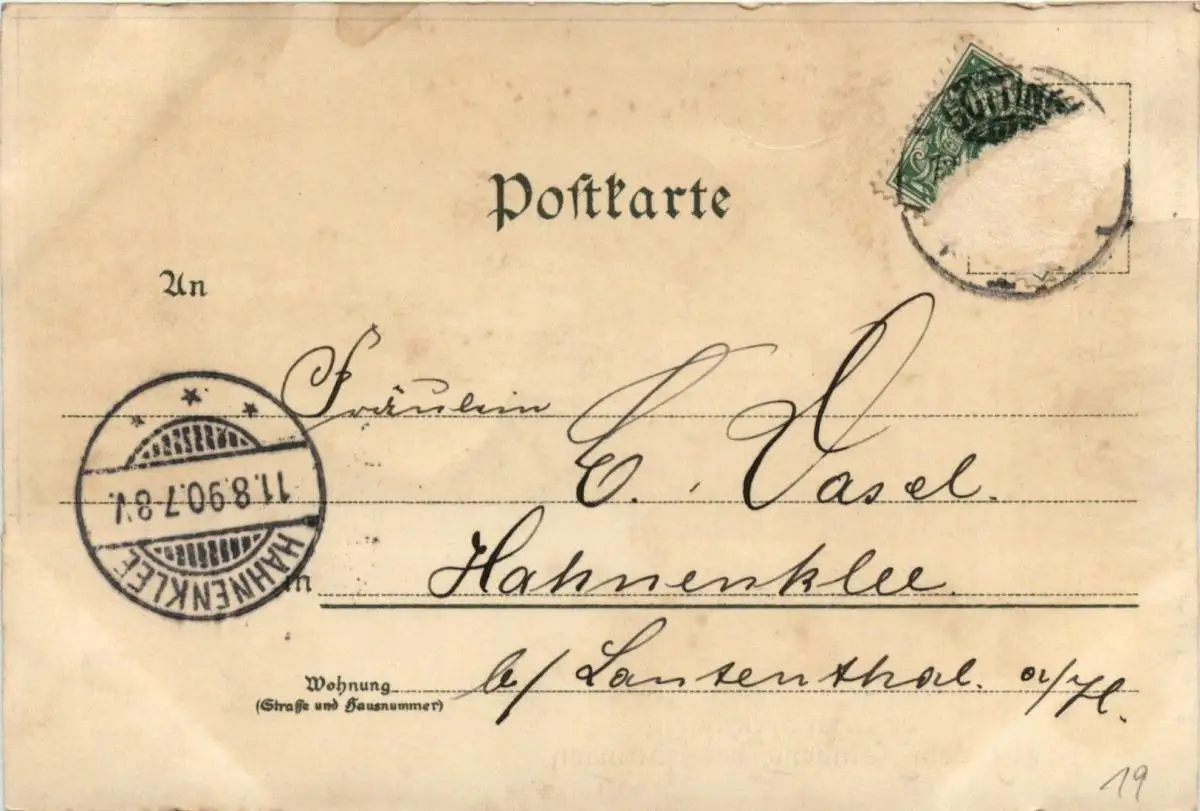 Postkarte
An
Fräulein
E. Vasel.
in Hahnenklee.
Wohnung b/ Lautenthal. a/H.
(Straße und Hausnummer)
HAHNENKLEE
11.8.90.7-8V.
19